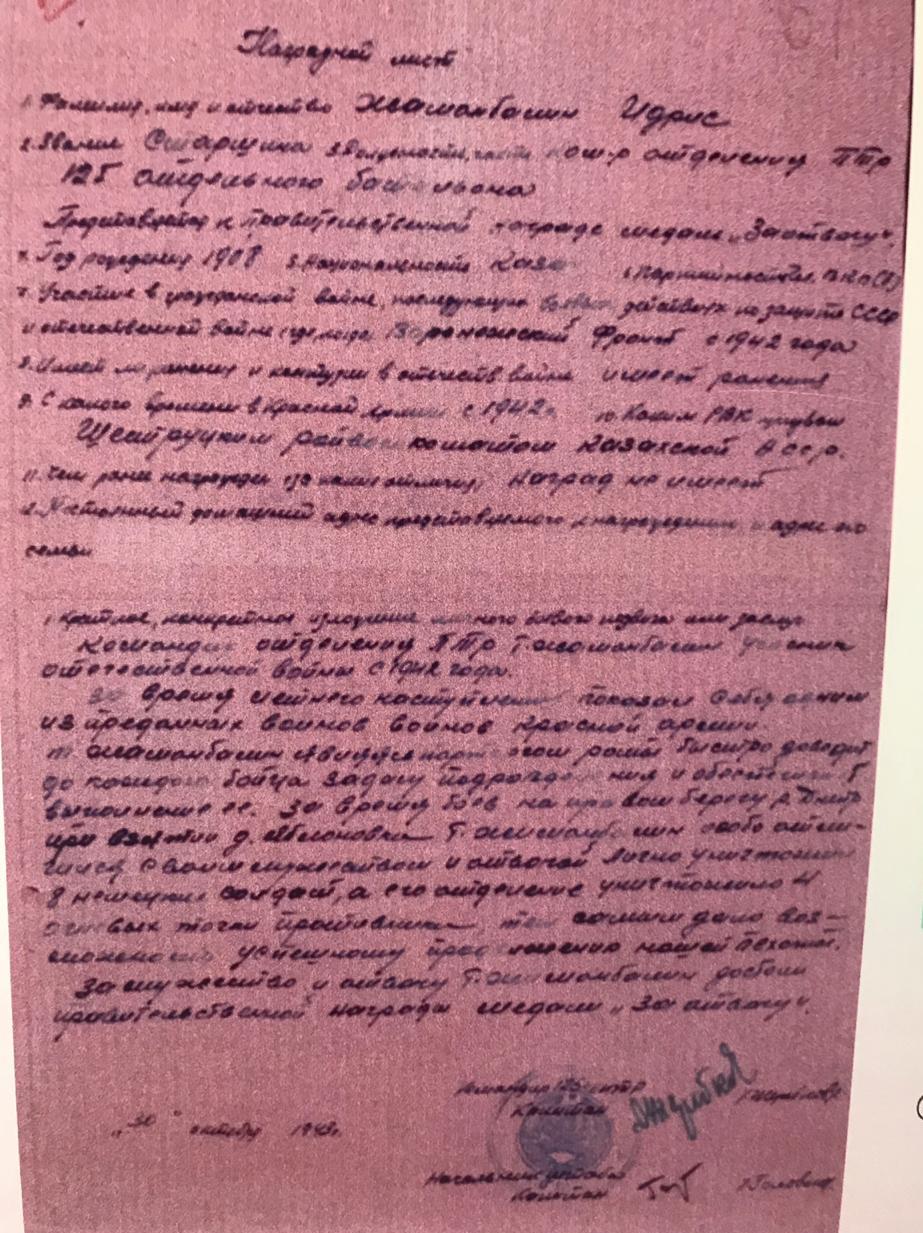 Наградной лист
1. Фамилия, имя и отчество Жаманбасин Идрис
2. Звание Старшина 3. Должность, часть ком-р отделения ПТР
125 отдельного батальона
Представляется к правительственной награде медали „За отвагу".
4. Год рождения 1908 5. Национальность Казах 6. Партийность ВКП(б)
7. Участие в гражданской войне, последующих боевых действиях по защите СССР
и отечественной войне где, когда Воронежский Фронт с 1942 года
8. Имеет ли ранения и контузии в отечеств войне имеет ранения
9. С какого времени в Красной Армии с 1942г. 10 Каким РВК призван
райвоенкоматом Казахской ССР.
11. Чем ранее награжден (за какие отличия) наград не имеет
12. Постоянный домашний адрес представляемого к награждению и адрес его
семьи
1. Краткое, конкретное изложение личного боевого подвига или заслуг
Командир отделения ПТР Т. Жаманбасин участник
отечественной войны с 1942 года.
За время летнего наступления показал себя одним
из преданных воинов воинов красной армии.
т Жаманбасин быстро доводит
до каждого бойца задачу подразделения и
выполнение ее. За время боев на правом берегу р. Днепр
при взятии д. Яблоновка Т. Жаманбасин особо отли-
чился своим мужеством и отвагой лично уничтожил
8 немецких солдат, а его отделение уничтожило 4
огневых точки противника, тем самым дало воз-
можность успешному продвижению нашей пехоты.
За мужество и отвагу Т. Жаманбасин достоин
правительственной награды медали „За отвагу".
Командир
Капитан
„30" октября 1943г.
Начальник штаба
Капитан